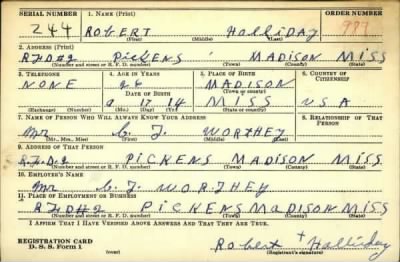 SERIAL NUMBER 1. NAME (Print) ORDER NUMBER
244 ROBERT Holliday 977
(First) (Middle) (Last)
2. ADDRESS (Print)
RFD#2 Pickens MADISON MISS
(Number and street or R. F. D. number) (Town) (County) (State)
3. TELEPHONE 4. AGE IN YEARS 5. PLACE OF BIRTH 6. COUNTRY OF CITIZENSHIP
NONE MADISON
DATE OF BIRTH (Town or county)
9 17 14 MISS USA
(Exchange) (Number) (Mo.) (Day) (Yr.) (State or country)
7. NAME OF PERSON WHO WILL ALWAYS KNOW YOUR ADDRESS 8. RELATIONSHIP OF THAT PERSON
Mr C. J. WORTHEY
(Mr., Mrs., Miss) (First) (Middle) (Last)
9. ADDRESS OF THAT PERSON
R.F.D.2 PICKENS MADISON MISS
(Number and street or R. F. D. number) (Town) (County) (State)
10. EMPLOYER'S NAME
Mr C. J. WORTHEY
11. PLACE OF EMPLOYMENT OR BUSINESS
RFD#2 PICKENS MADISON MISS
(Number and street or R. F. D. number) (Town) (County) (State)
I AFFIRM THAT I HAVE VERIFIED ABOVE ANSWERS AND THAT THEY ARE TRUE.
REGISTRATION CARD
D. S. S. Form 1 (over) Robert + Holliday
(Registrant's signature)